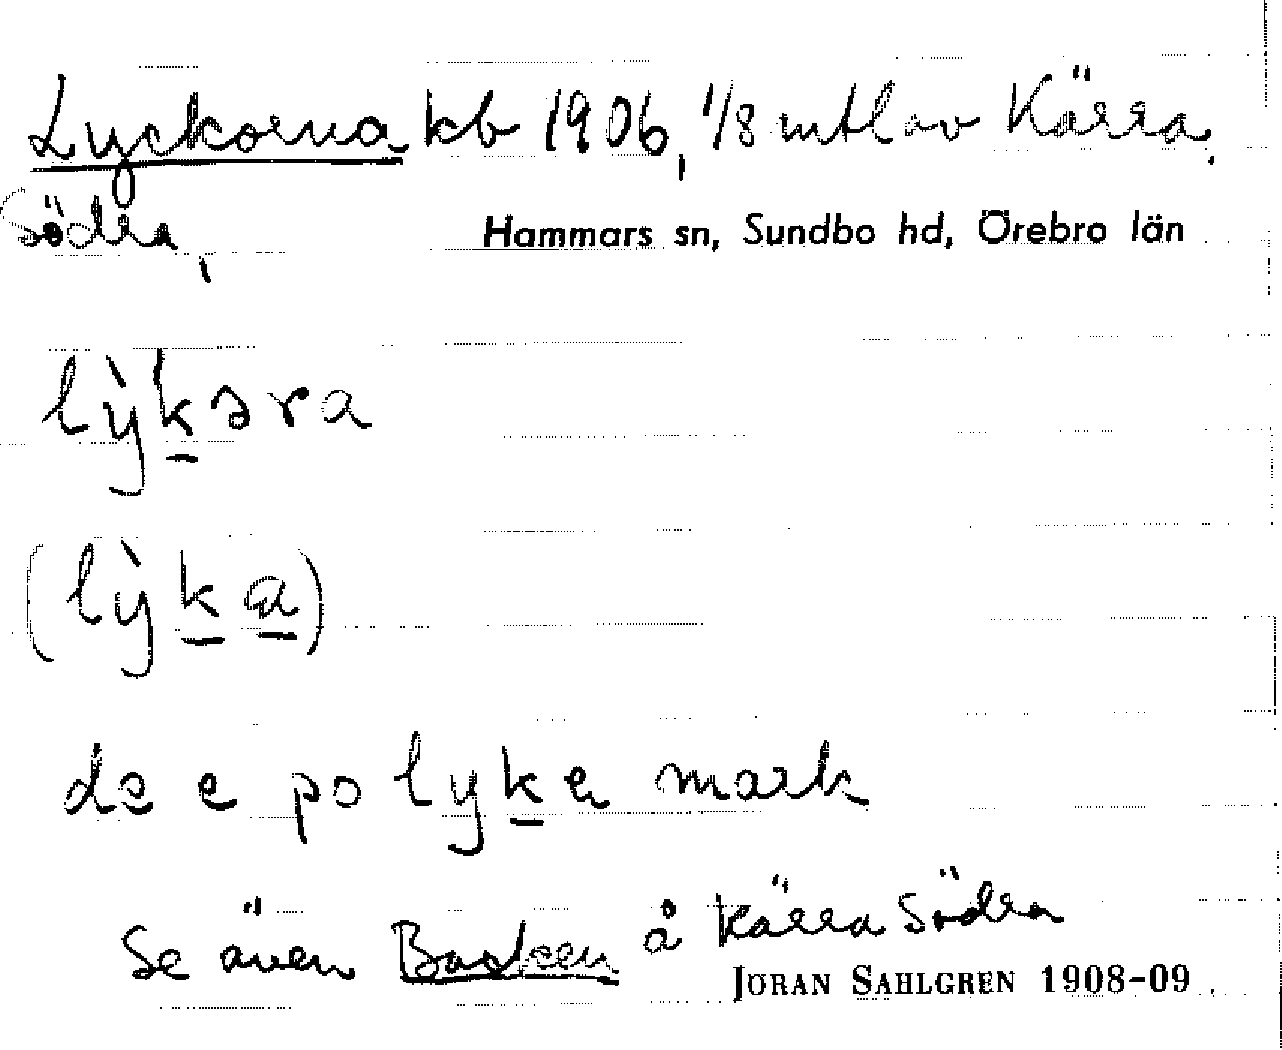 Lyckorna kb 1906, 1/8 mtl av Kärra,
Södra,
Hammars sn, Sundbo hd, Örebro län
lỳkəra
(lỳka)
de e po lyka mark
Se även Backen å Kärra Södra
JÖRAN SAHLGREN 1908-09